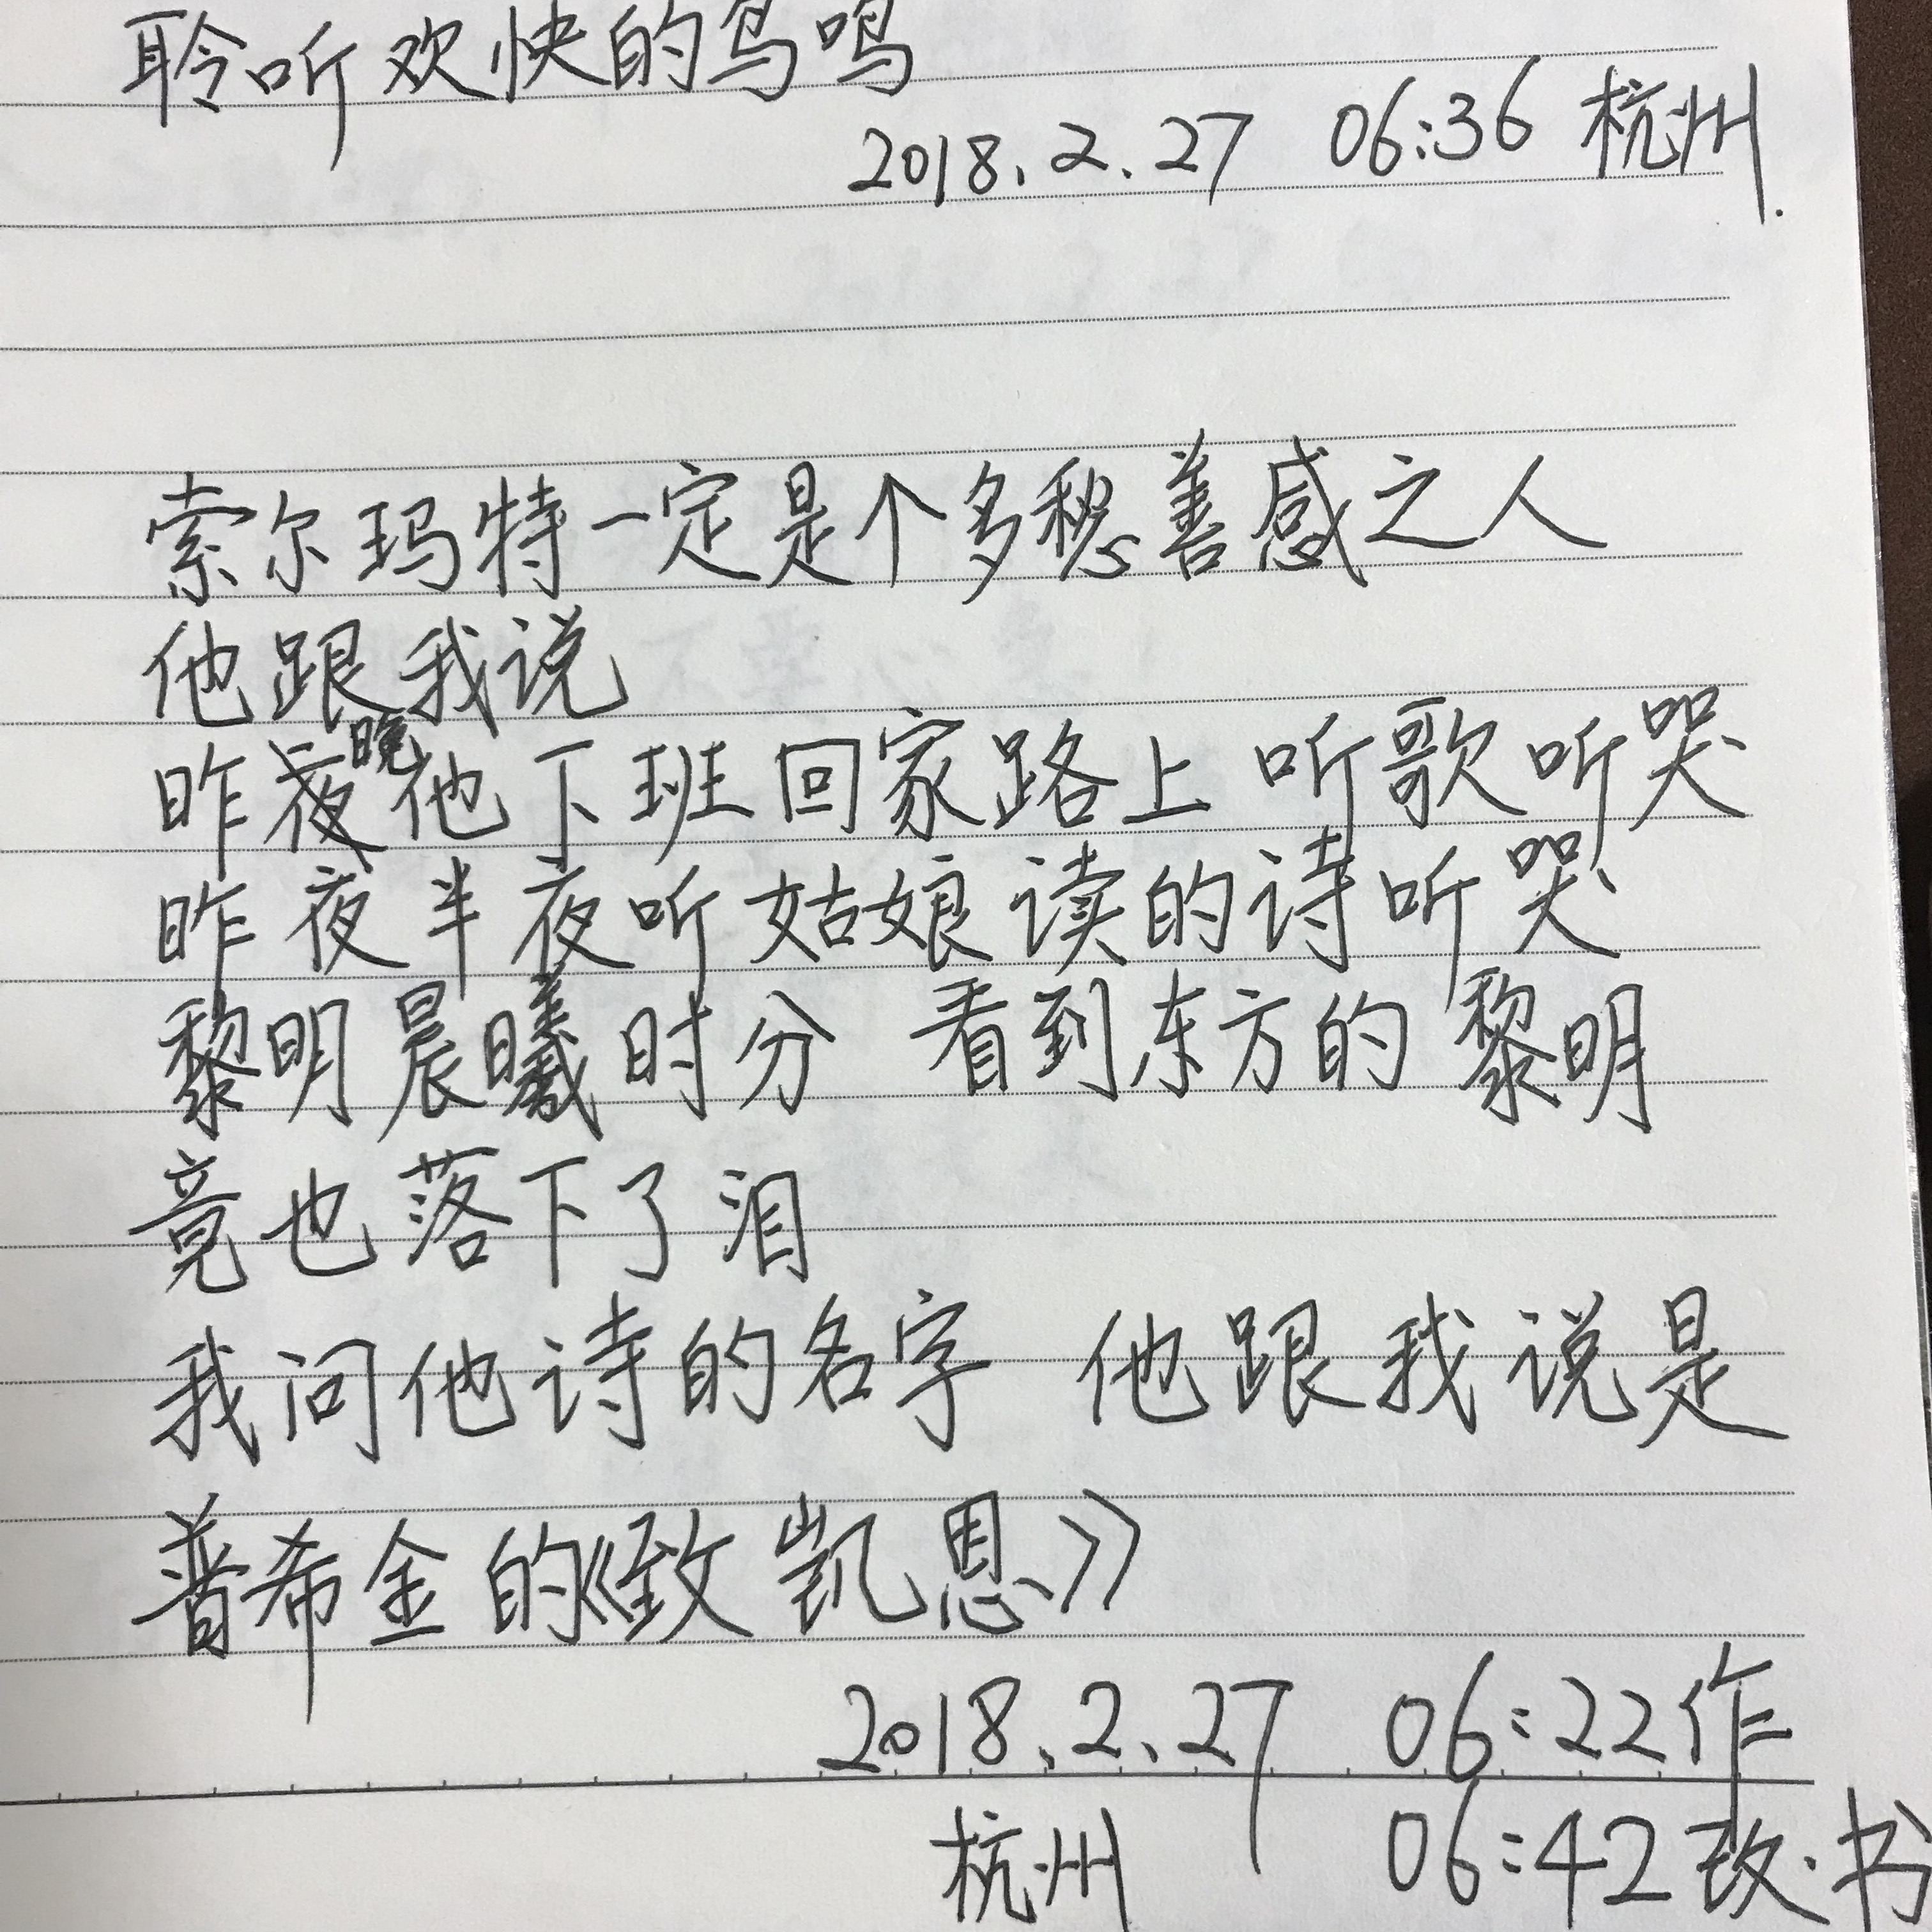 聆听欢快的鸟鸣
2018.2.27 06:36 杭州.
索尔玛特一定是个多愁善感之人
他跟我说
昨夜晚他下班回家路上 听歌听哭
昨夜半夜听姑娘读的诗听哭
黎明晨曦时分 看到东方的黎明
竟也落下了泪
我问他诗的名字 他跟我说是
普希金的《致凯恩》
2018.2.27 06:22作
杭州 06:42改·书